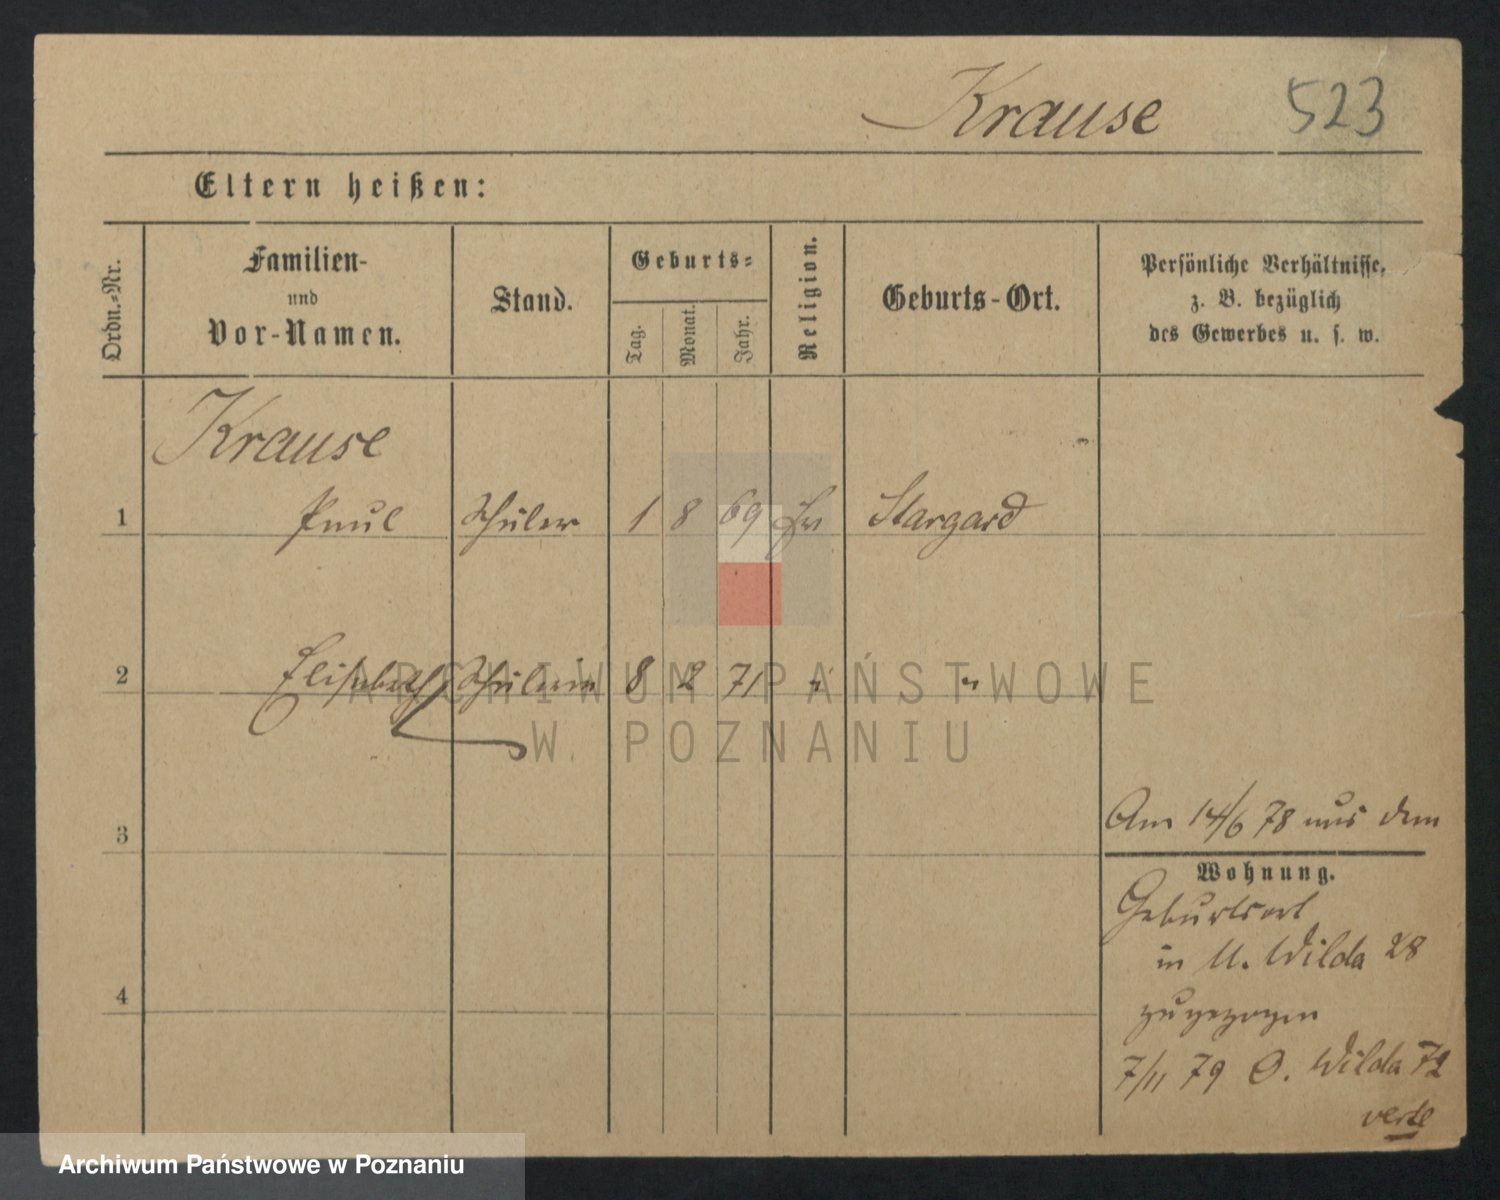 Krause 523
Eltern heißen:
Ordn.-Nr.
Familien-
und
Vor-Namen.
Stand.
Geburts-
Tag.
Monat.
Jahr.
Religion.
Geburts-Ort.
Persönliche Verhältnisse,
z. B. bezüglich
des Gewerbes u. s. w.
Krause
1 Paul Schüler 1 8 69 Stargard
2 Elisabeth Schülerin 8 2 71 " "
3
Am 14/6 78 aus dem
Wohnung.
Geburtsort
in U. Wilda 28
4
zugezogen
7/11 79 O. Wilda 72
verte
ARCHIWUM PAŃSTWOWE
W POZNANIU
Archiwum Państwowe w Poznaniu